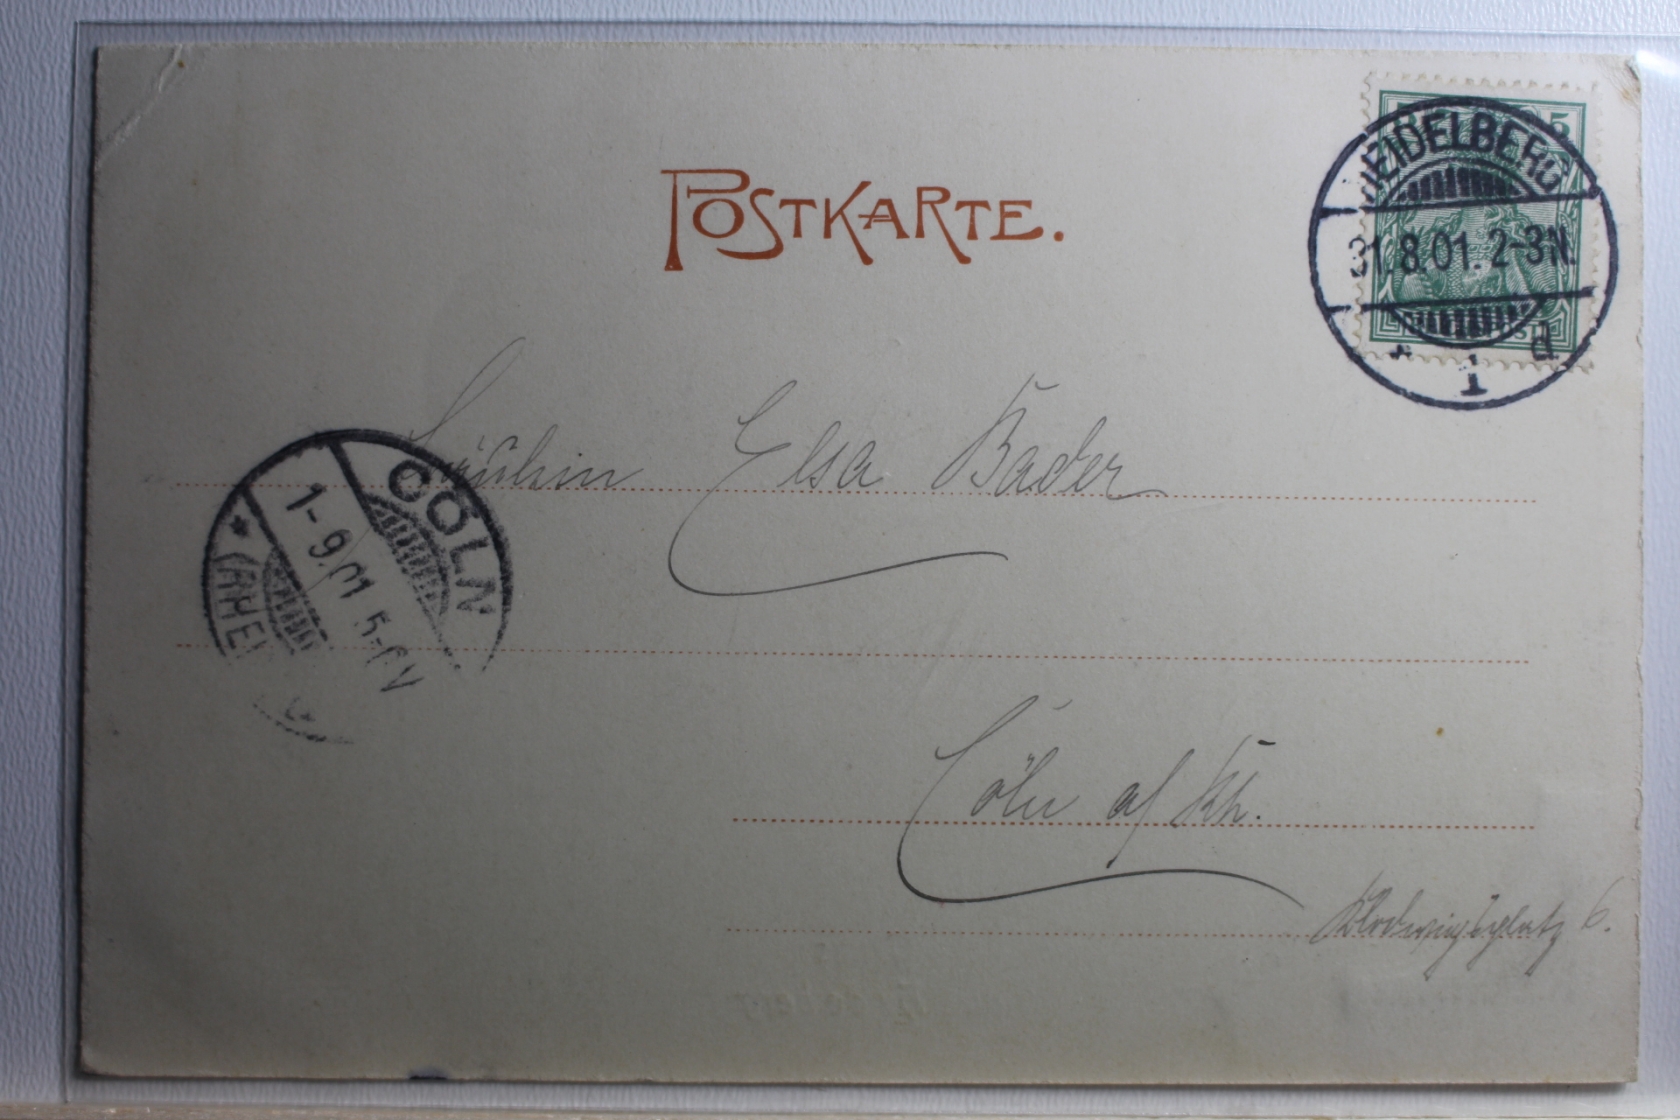 POSTKARTE.
5
HEIDELBERG
31.8.01. 2-3N.
* 1 d.
Fräulein Elsa Bader
CÖLN
1-9.01 5-6N
* (RHEIN
Cöln a/ Rh.
Klodwigsplatz 6.